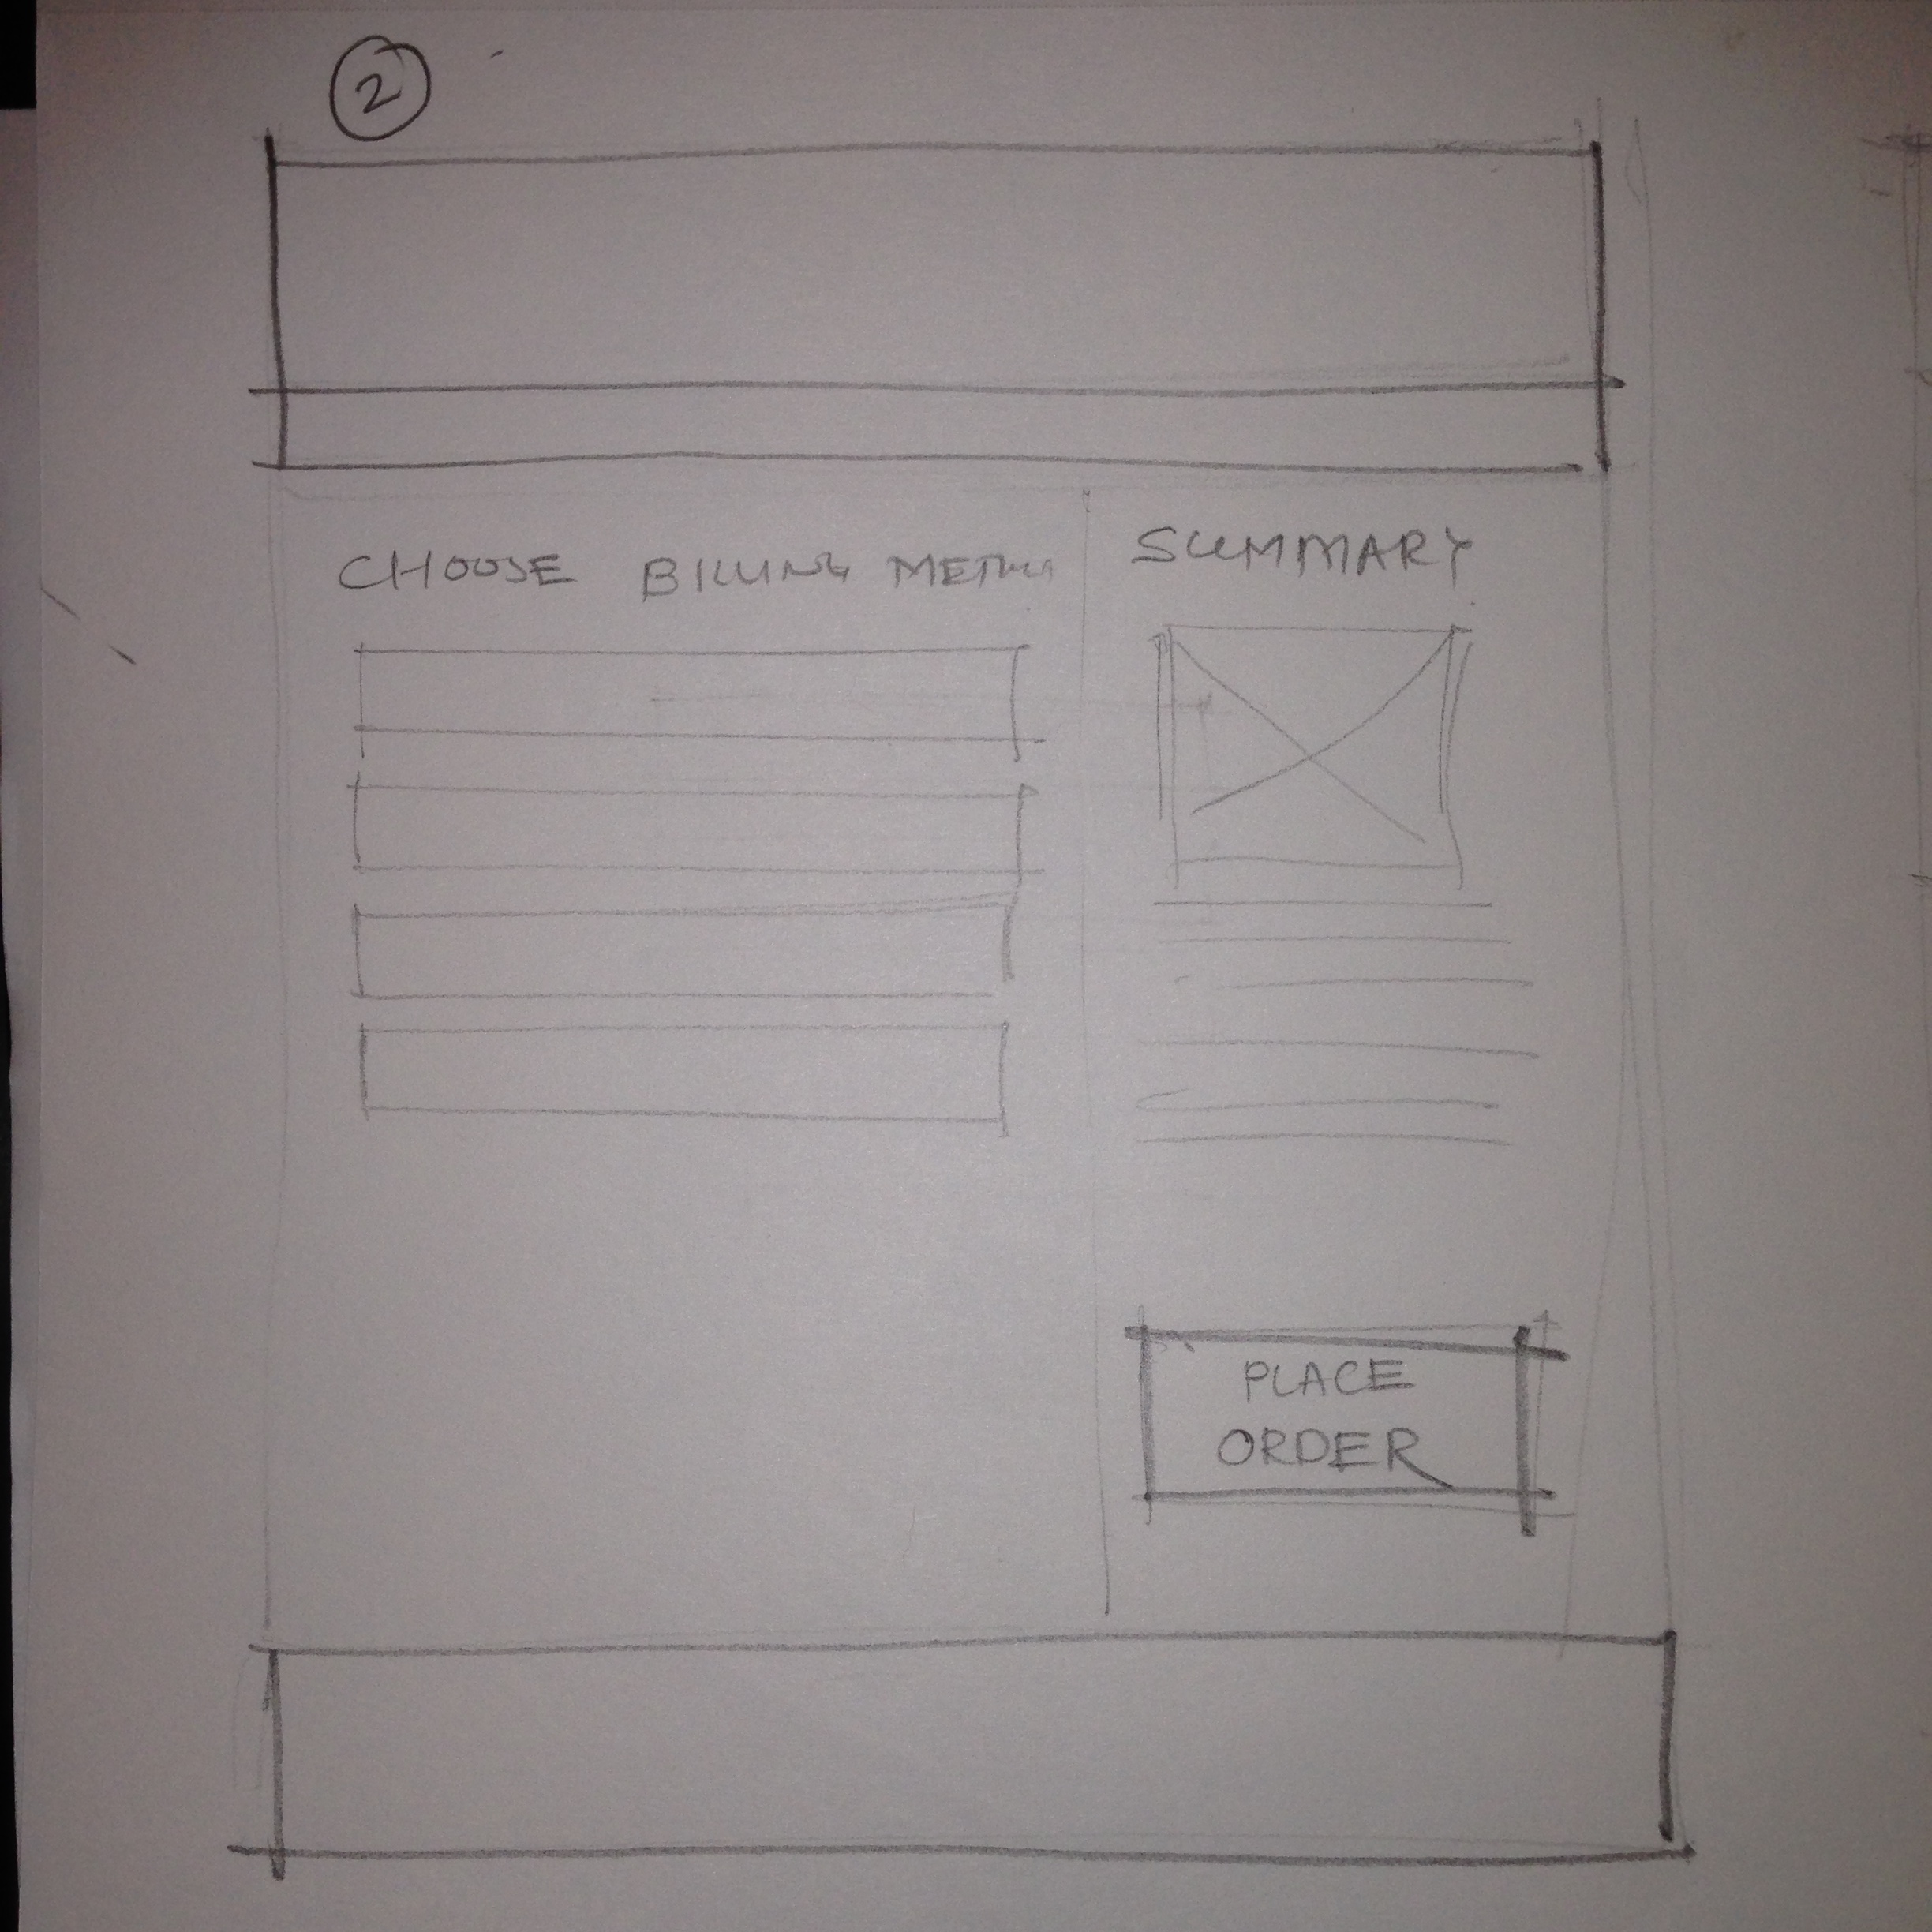 2
CHOOSE BILLING
SUMMARY
PLACE
ORDER